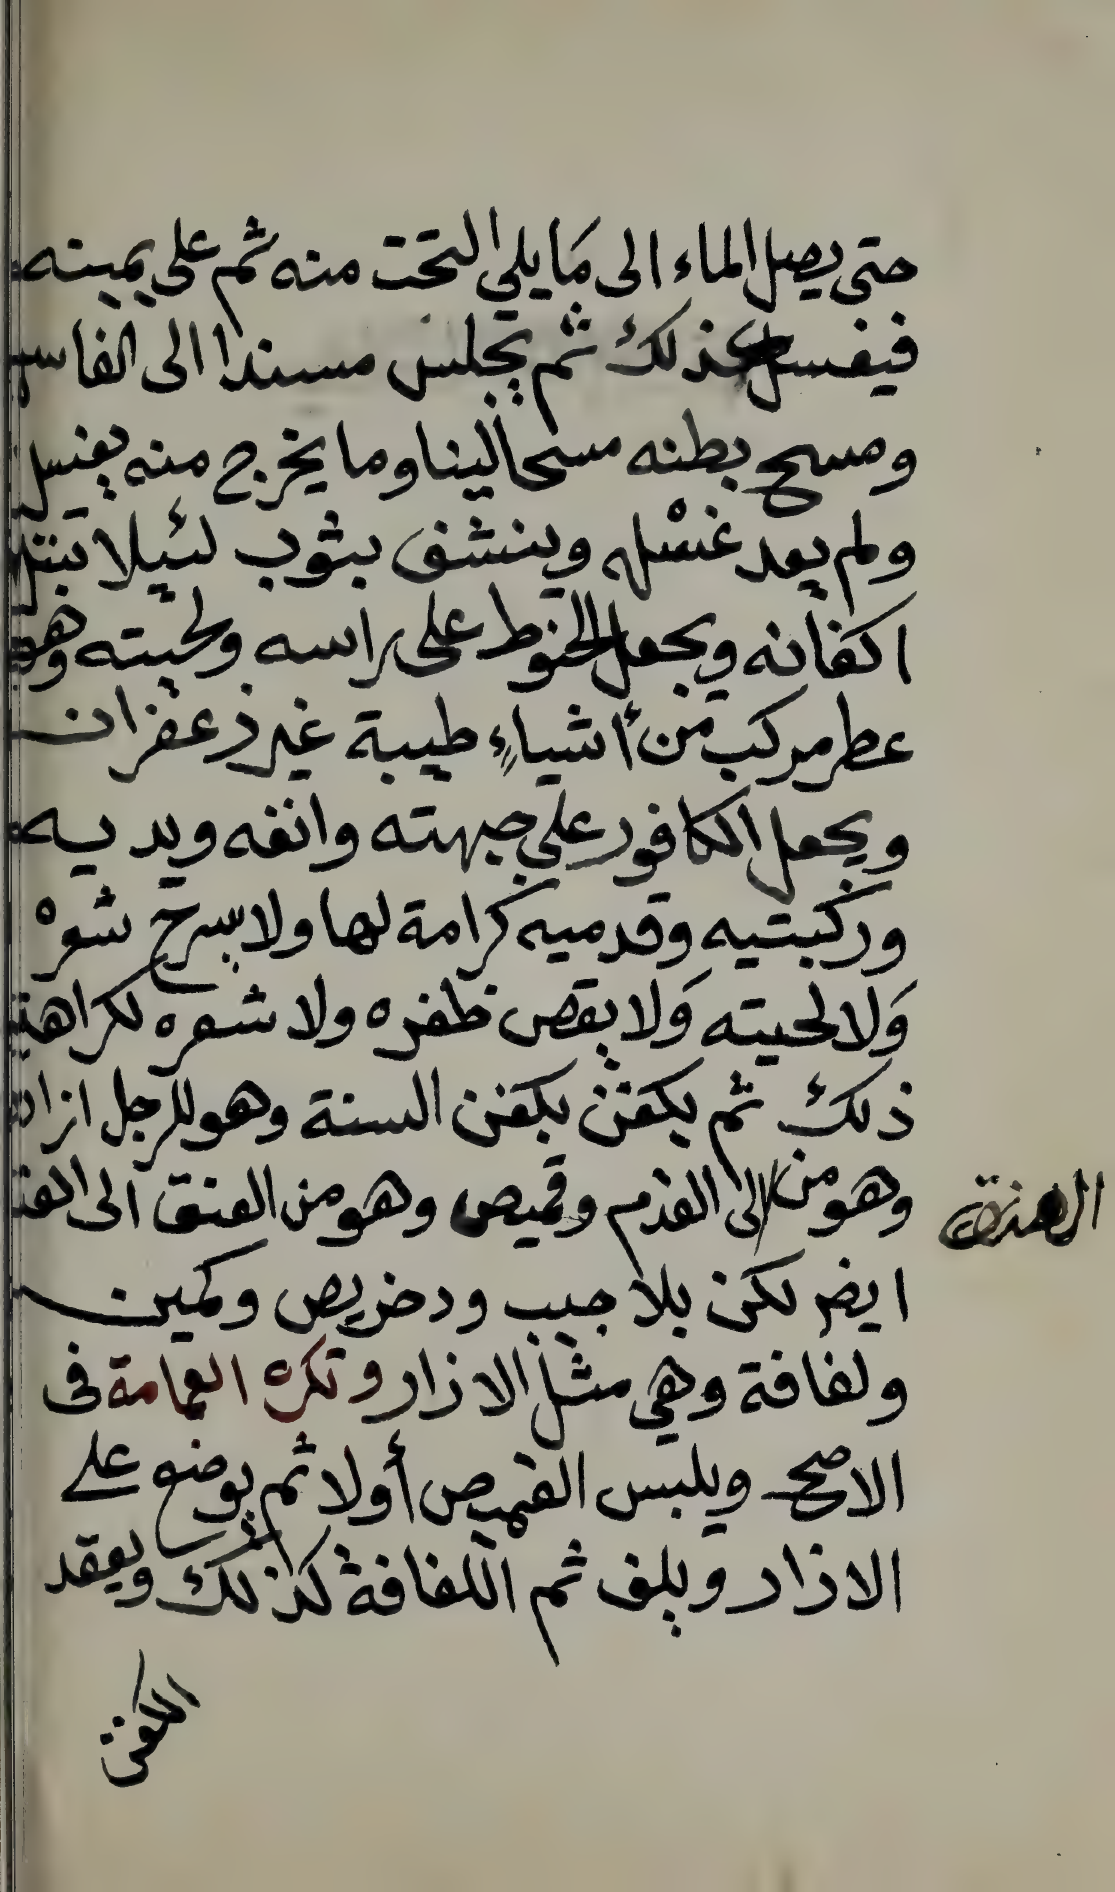 حتى يصل الماء الى مَا يلي التحت منه ثم على يمينه
فيغسل كذلك ثم يجلس مسندا الى الغاسل
ومسح بطنه مسحا لينا وما يخرج منه يغسل
ولم يعد غسْله وينشف بثوب لئيلا تبتل
اكفانه ويجعل الحنوط على راسه ولحيته وهو
عطر مركب من أشياءٍ طيبة غير زعفران
ويجعل الكافور على جبهته وانفه ويديه
وركبتيه وقدميه كرامة لها ولا يسرح شعره
وَلا لحيته وَلا يقص ظفره ولا شعره لكراهة
ذلك ثم يكفن بكفن السنة وهو للرجل ازار
وهو من الى القدم وقميص وهو من العنق الى القدم
العنق
ايض لكن بلا جيب ودخريص وكمين
ولفافة وهي مثل الازار وتكره العمامة فى
الاصح ويلبس القميص أولا ثم يوضع على
الازار ويلف ثم اللفافة كذلك ويعقد
الكفن